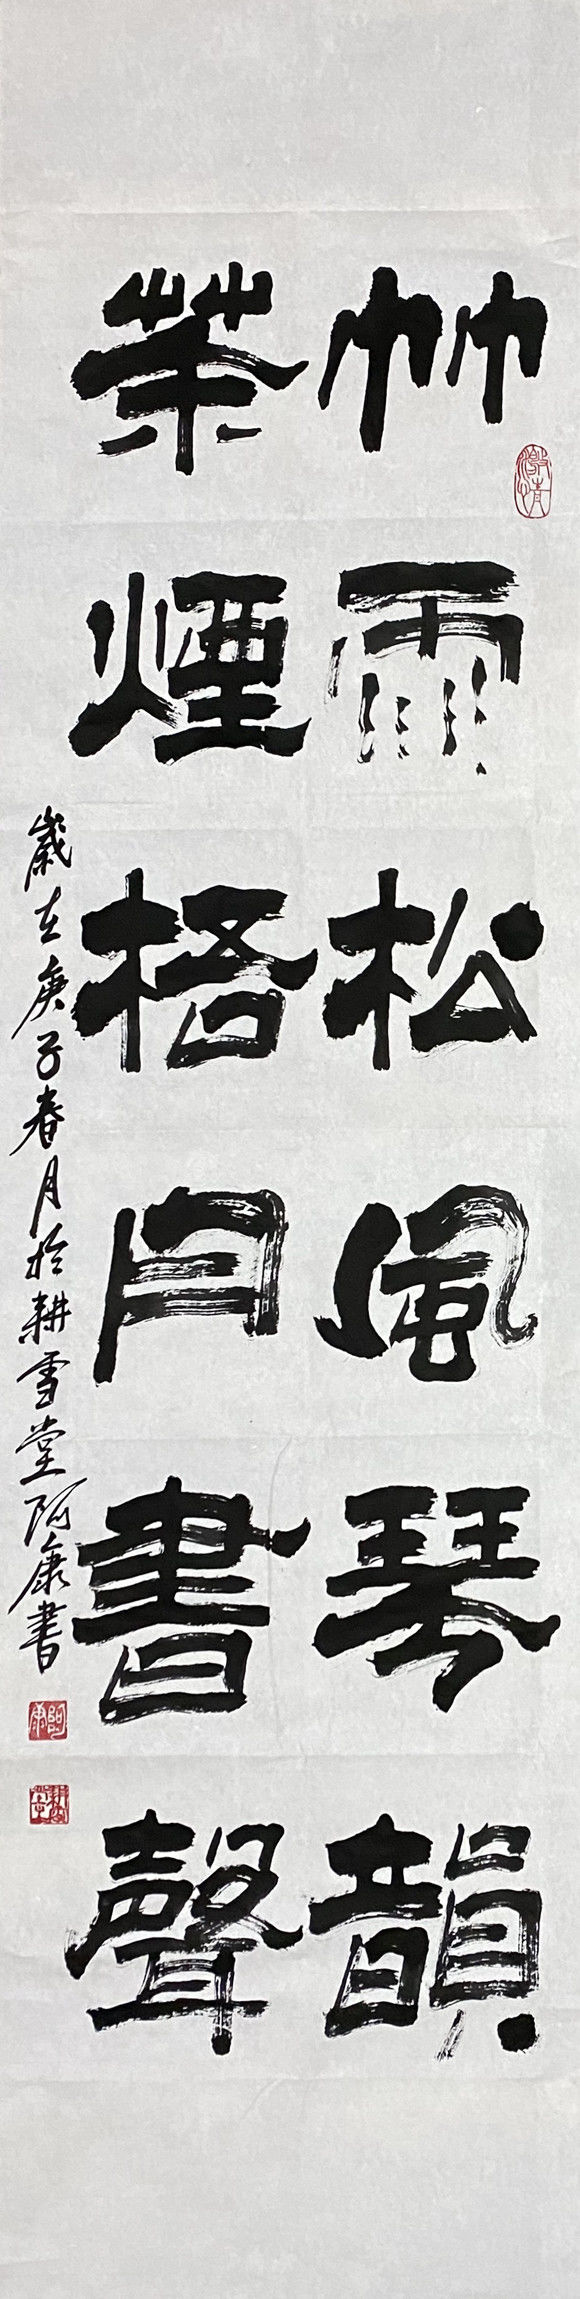 竹雨松風琴韻
茶煙梧月書聲
歲在庚子春月於耕雪堂阿康書
阿康
耕雪堂